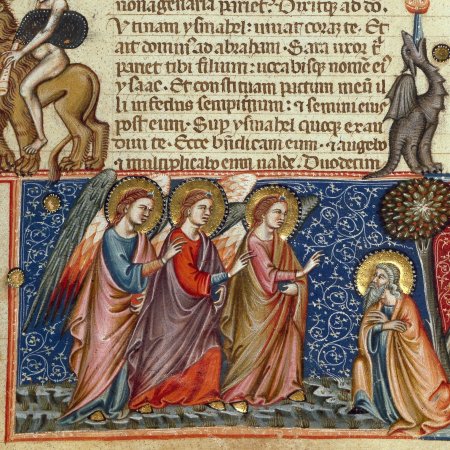 nonagenaria pariet? Dixitq; ad dō.
Utinam ysmahel uiuat coraz te. Et
ait dominus ad abraham. Sara uxor tˉ
pariet tibi filium: uocabisq; nomē eĩ
ysaac. Et constituam pactum meũ il
li in fedus sempiternum: ⁊ semini eius
post eum. Sup ysmahel quoq; exau
diui te. Ecce bñdicam eum. ⁊ augebo
⁊ multiplicabo eum ualde. Duodecim